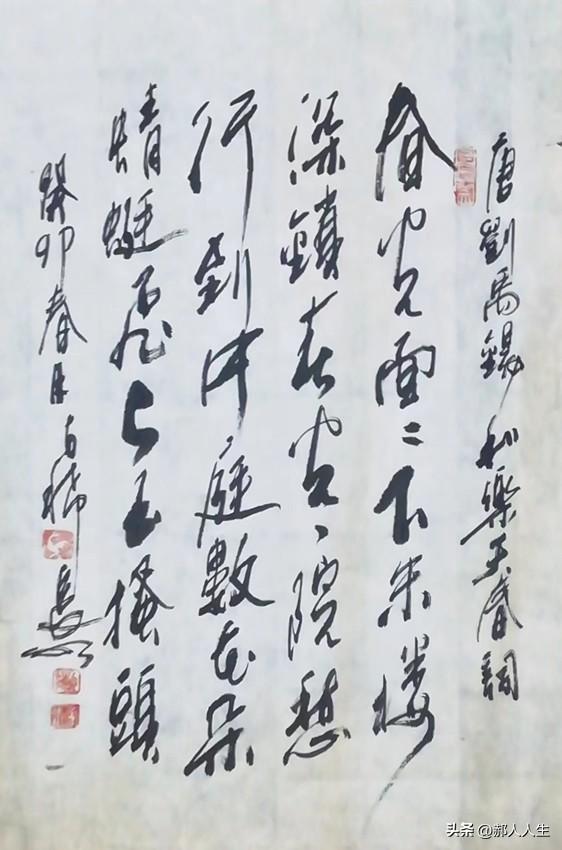 唐劉禹錫 和樂天春詞
春光面々下朱楼
深鎖春光一院愁
行到中庭數花朵
蜻蜓飛上玉搔頭
癸卯春月古稀
头条 @郝人人生